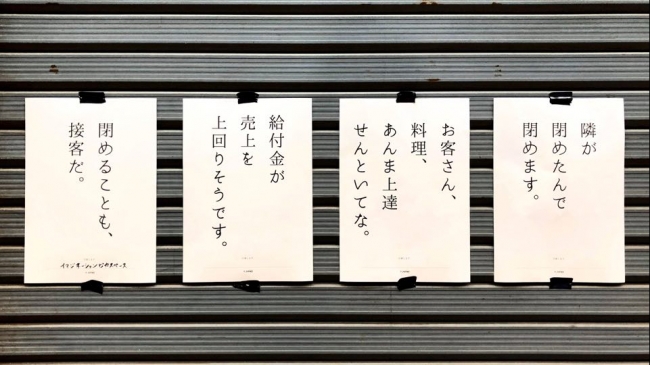 隣が
閉めたんで
閉めます。
お客さん、
料理、
あんま上達
せんといてな。
給付金が
売上を
上回りそうです。
閉めることも、
接客だ。